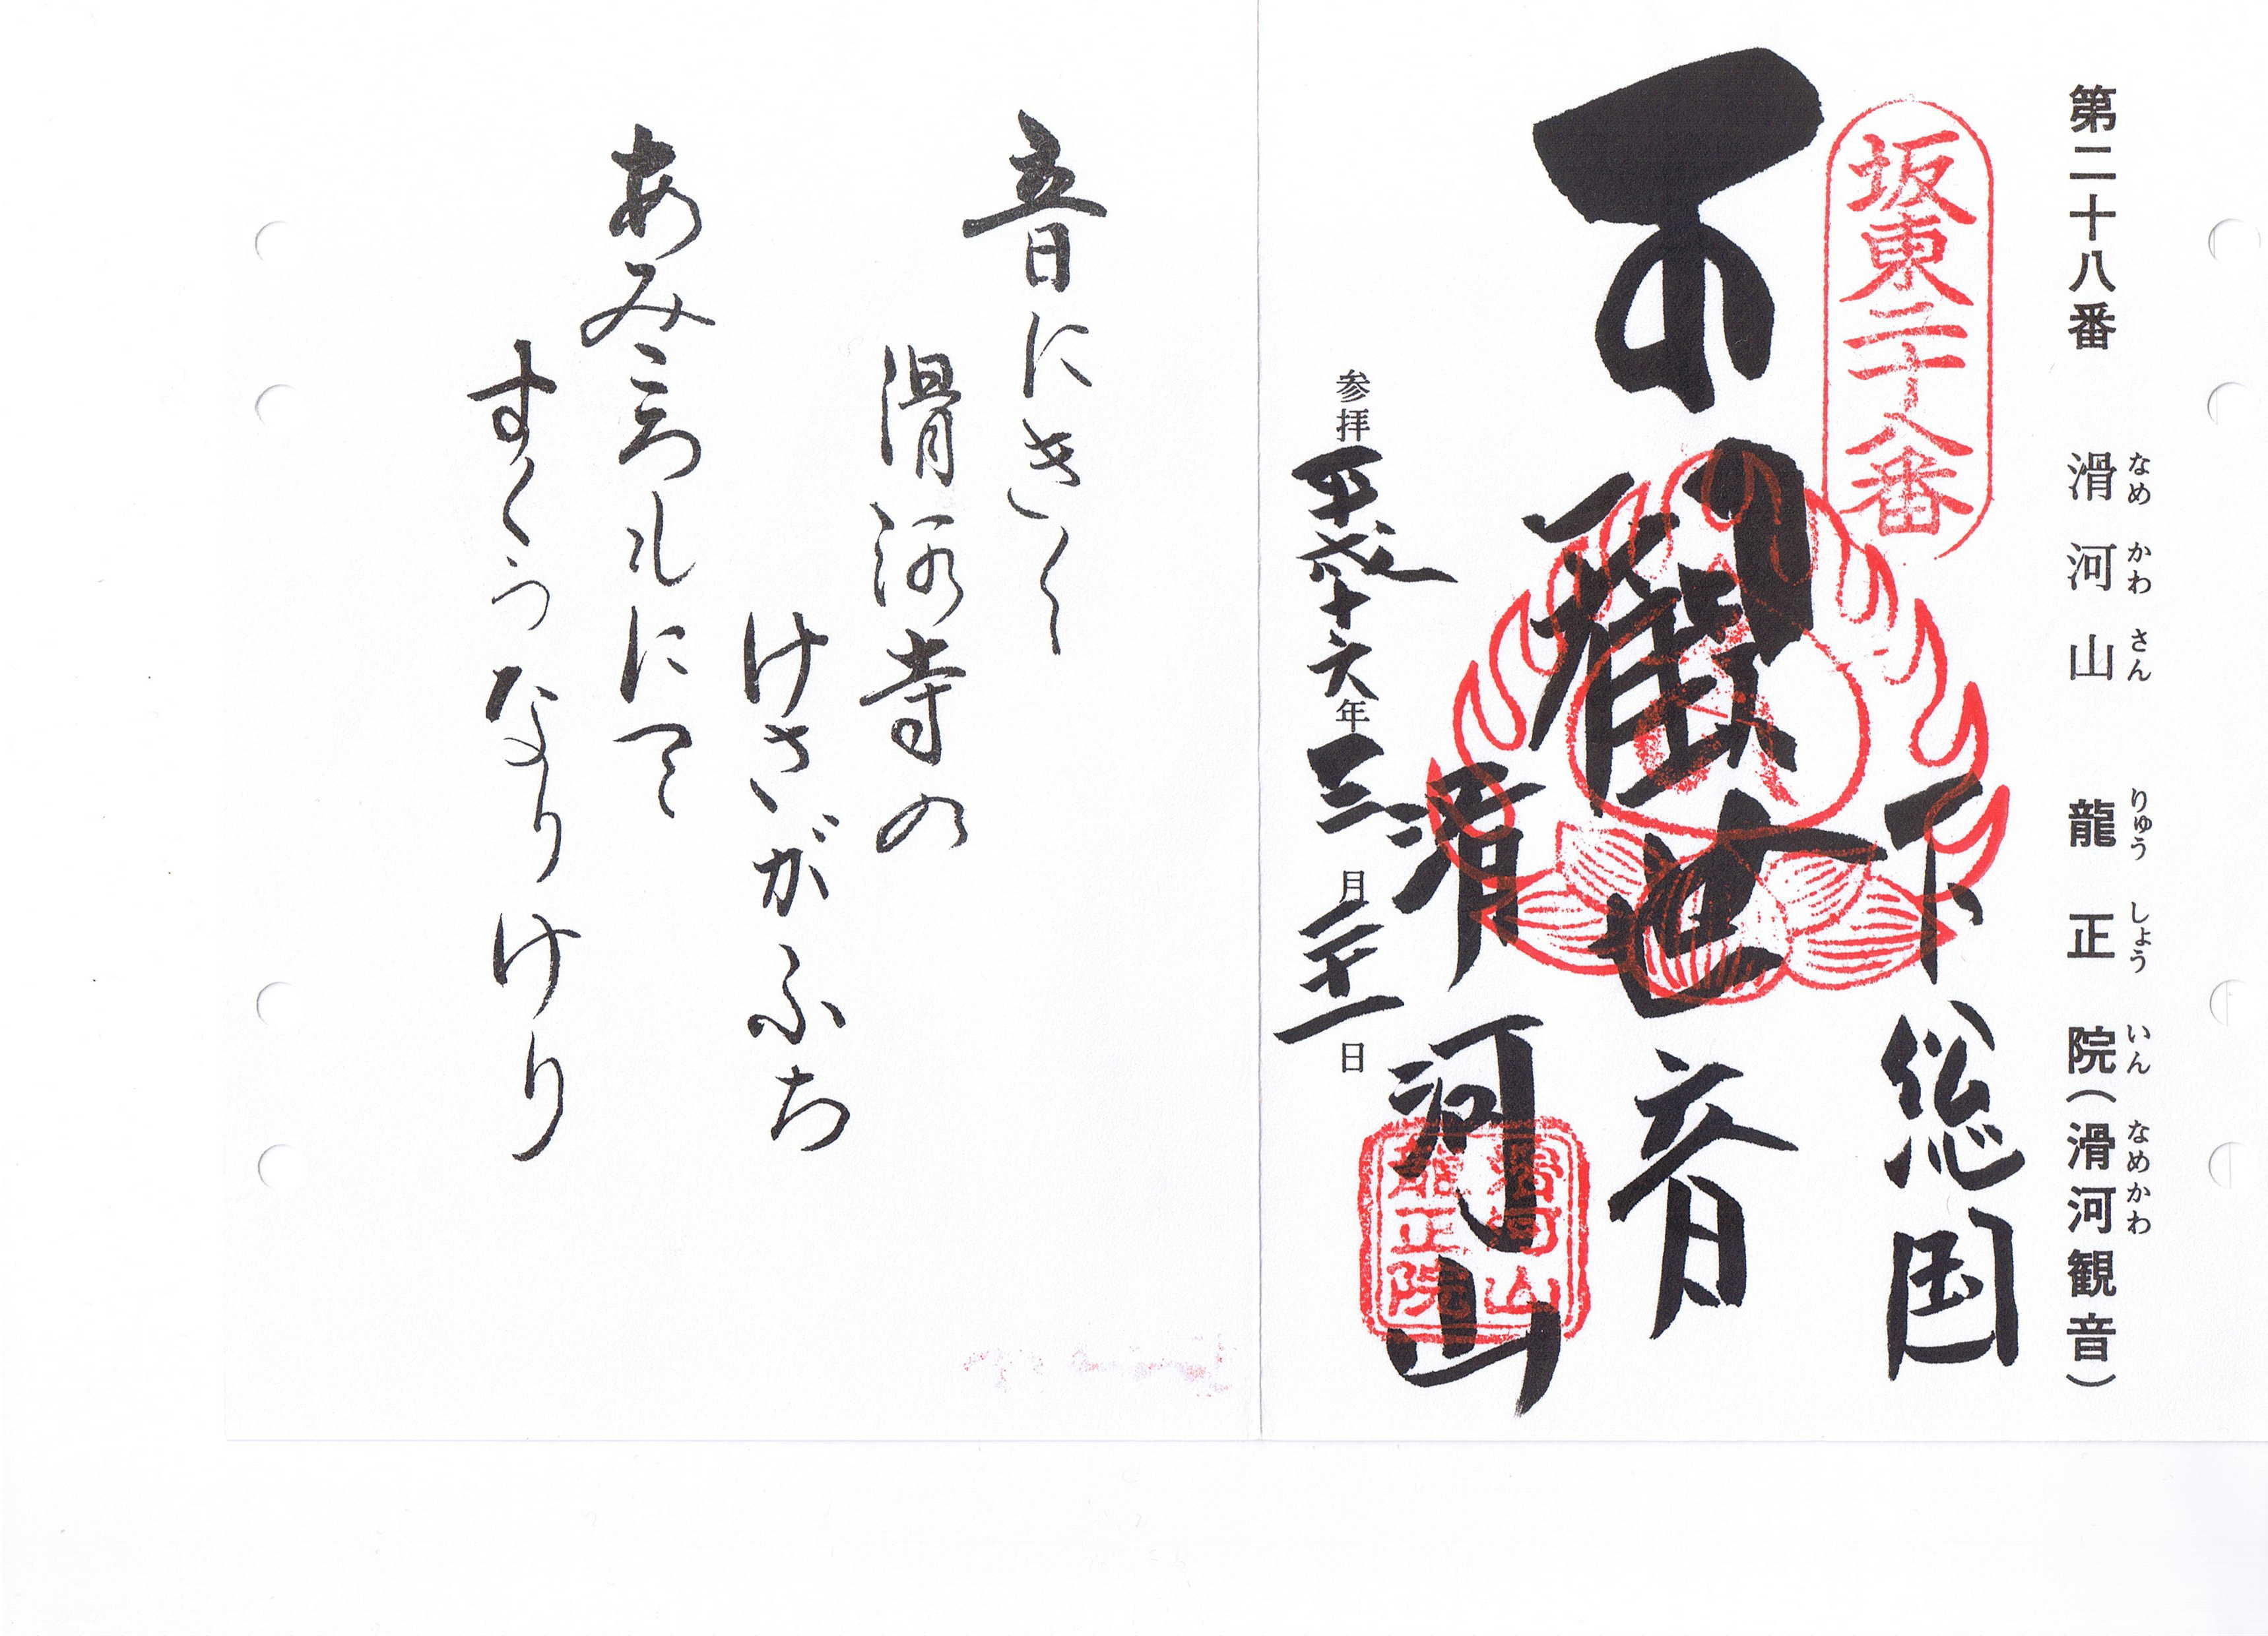 第二十八番 滑河山 龍正院(滑河観音)
なめ かわ さん りゅう しょう いん なめかわ
坂東二十八番
下総国
観世音
滑河山
滑河山
龍正院
参拝 平成十六年 三月 二十一日
音にきく
滑河寺の
けさがふち
あみころもにて
すくうなりけり